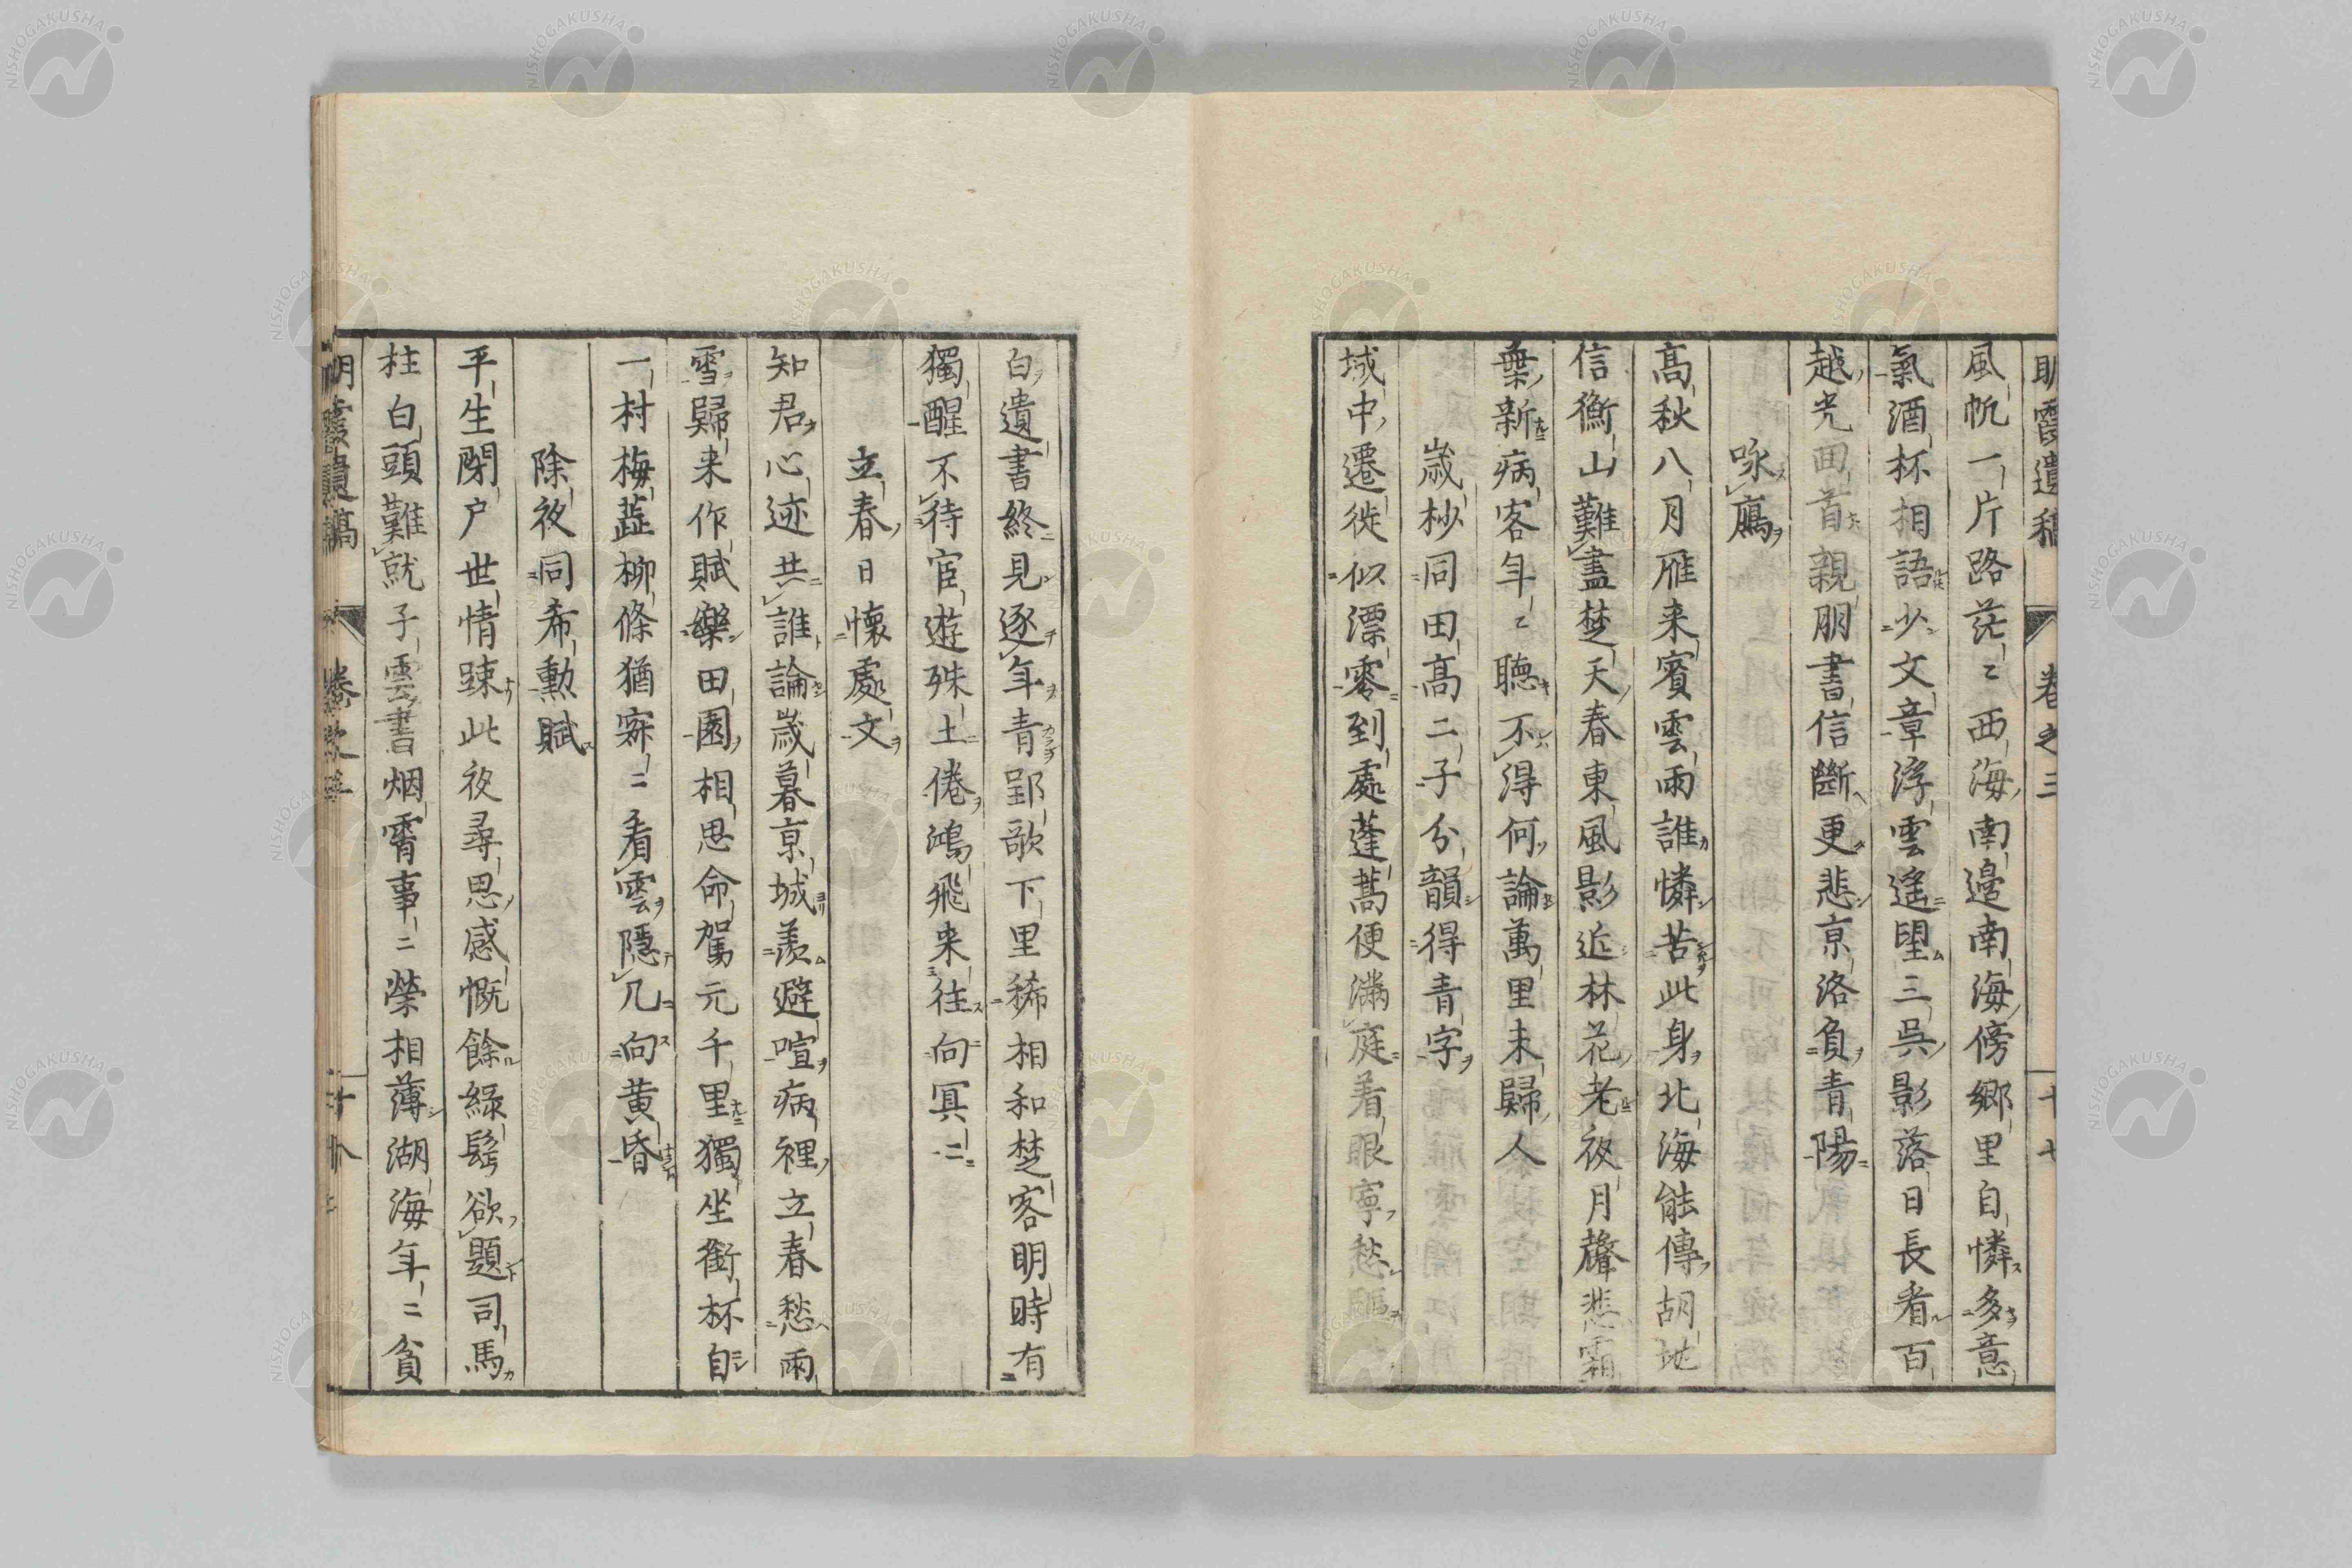 風帆一片路茫〻西海南邊南海傍鄉里自憐多意
氣酒杯相語少文章浮雲遙望三吳影落日長看百
越光回首親朋書信斷更悲京洛負青陽
咏鴈
高秋八月雁来賓雲雨誰憐苦此身北海能傳胡地
信衡山難盡楚天春東風影近林花老夜月聲悲霜
葉新病客年〻聽不得何論萬里未歸人
歳杪同田高二子分韻得青字
域中遷徙似漂零到處蓬蒿便滿庭着眼寧愁
白遺書終見逐年青郢歌下里稀相和楚客明時有
獨醒不待宦遊殊土倦鴻飛来往向冥〻
立春日懷處文
知君心迹共誰論歳暮京城羨避喧病裡立春愁雨
雪歸来作賦樂田園相思命駕元千里獨坐銜杯自
一村梅蕋柳條猶寂〻看雲隱几向黄昏
除夜同希勳賦
平生閉户世情踈此夜尋思感慨餘綠髩欲題司馬
柱白頭難就子雲書烟霄事〻榮相薄湖海年〻貧
霞遺稿 卷之三 十七